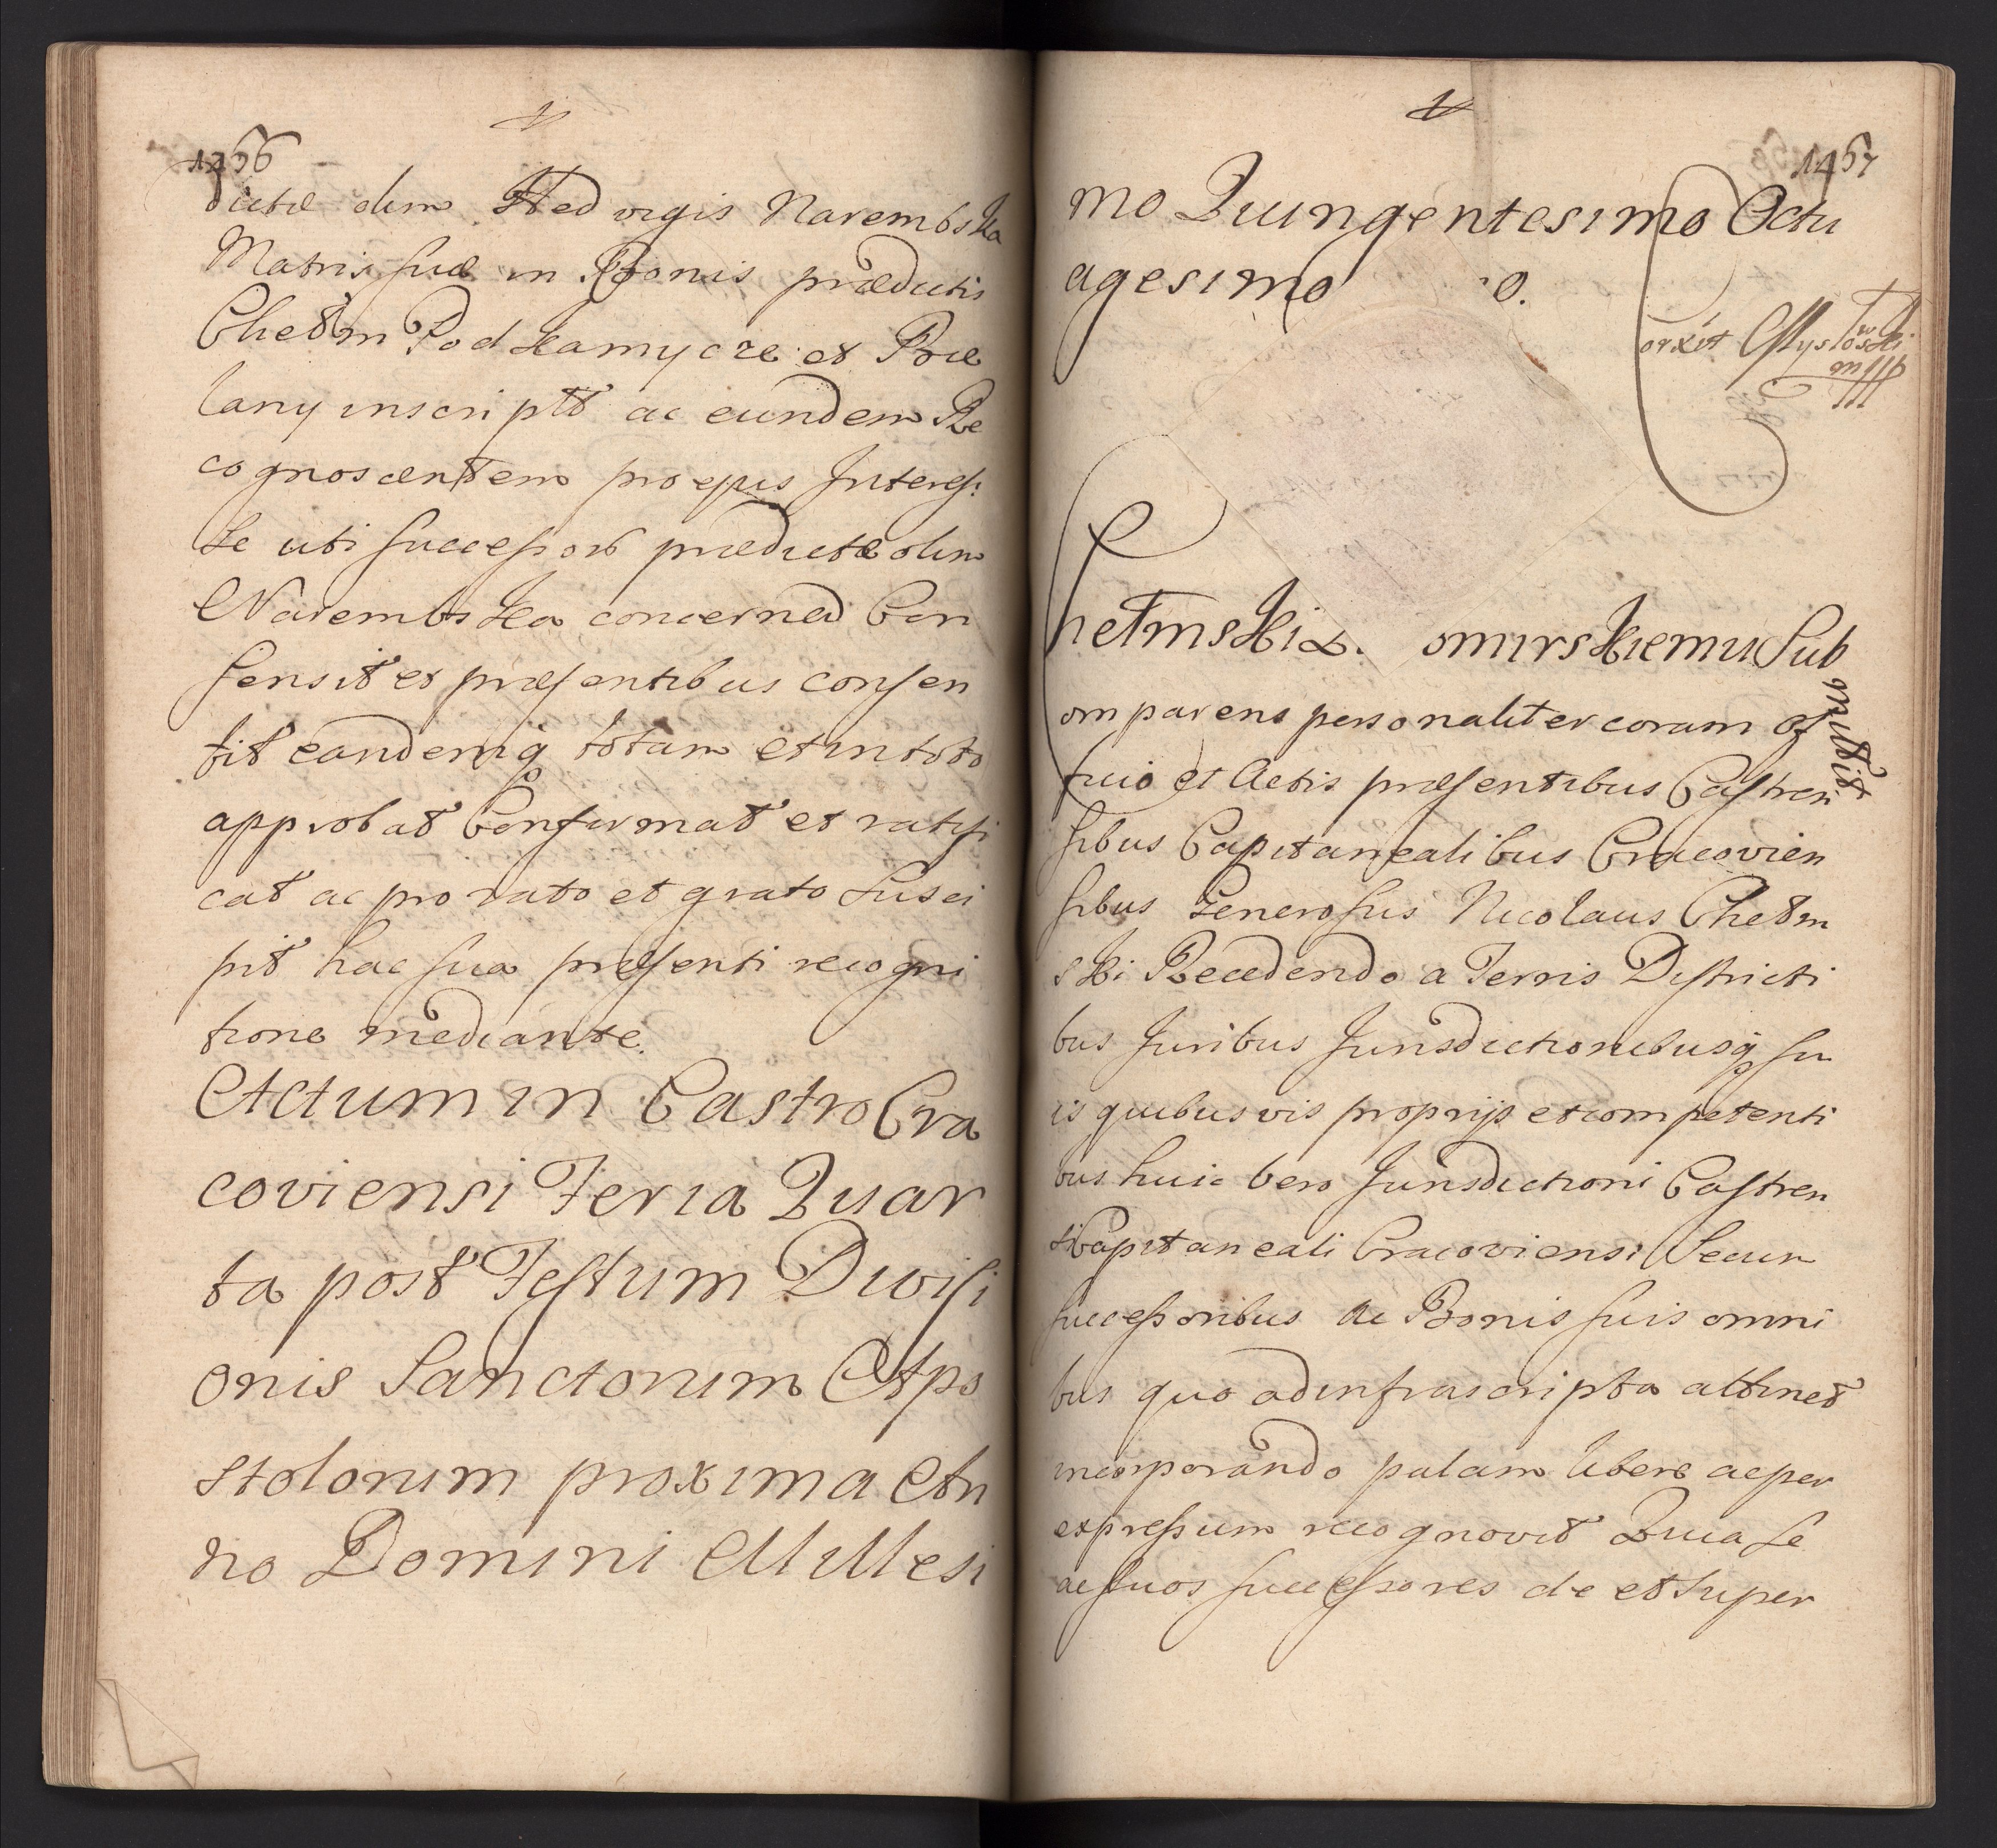 1456
dictæ olim Hedvigis Narembska
Matris suæ in Bonis prædictis
Chełm Podkamycze et Bie
lany inscriptt ac eundem Re
cognoscentem pro ejus Interes:
se uti successorē prædictæ olim
Narembska concerned Con
sensit et præsentibus consen
tit eandemq totam et in toto
approbat Confirmat et ratifi
cat ac pro rato et grato susci
pit hac sua præsenti recogni
tione mediante.
Actum in Castro Cra
coviensi Feria Quar
ta post Festum Divisi
onis Sanctorum Apo
stolorum proxima An
no Domini Millesi
1457
mo Quingentesimo Octu
agesimo
Chełmski omirskiemu Sub
mittit
omparens personaliter coram of
ficio et Actis præsentibus Castren
sibus Capitanealibus Cracovien
sibus Generosus Nicolaus Chełm
ski Recedendo a Terris Districti
bus Juribus Jurisdictionibusq su
is quibusvis proprijs et competenti
bus huic vero Jurisdictioni Castren
si Capitaneali Cracoviensi Se cum
successoribus ac Bonis suis omni
bus quo ad infrascripta attinet
incorporando palam libere ac per
expressum recognovit Quia se
ac suos successores de et super